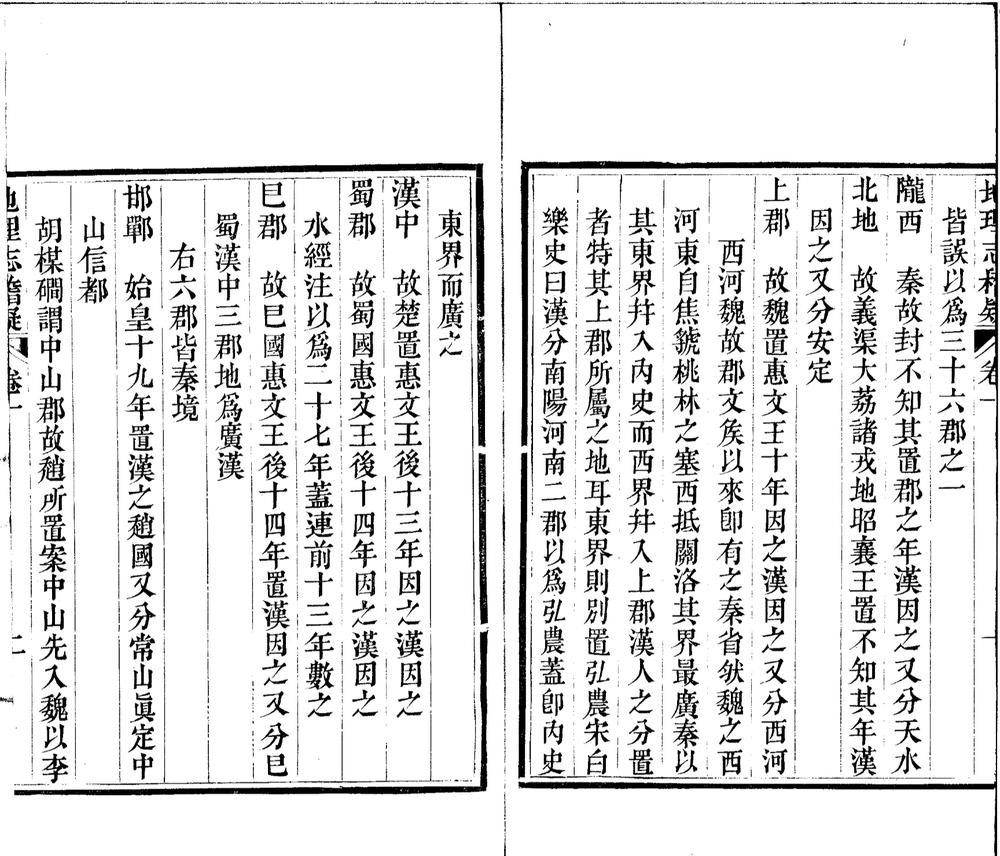 地理志稽疑 卷一
皆誤以爲三十六郡之一
隴西 秦故封不知其置郡之年漢因之又分天水
北地 故義渠大荔諸戎地昭襄王置不知其年漢
因之又分安定
上郡 故魏置惠文王十年因之漢因之又分西河
西河魏故郡文矦以來卽有之秦省狀魏之西
河東自焦虢桃林之塞西抵關洛其界最廣秦以
其東界幷入內史而西界幷入上郡漢人之分置
者特其上郡所屬之地耳東界則別置弘農宋白
樂史曰漢分南陽河南二郡以爲弘農蓋卽內史
東界而廣之
漢中 故楚置惠文王後十三年因之漢因之
蜀郡 故蜀國惠文王後十四年因之漢因之
水經注以爲二十七年蓋連前十三年數之
巴郡 故巴國惠文王後十四年置漢因之又分巴
蜀漢中三郡地爲廣漢
右六郡皆秦境
邯鄲 始皇十九年置漢之趙國又分常山眞定中
山信都
胡楳磵謂中山郡故趙所置案中山先入魏以李
地理志稽疑 卷一 二